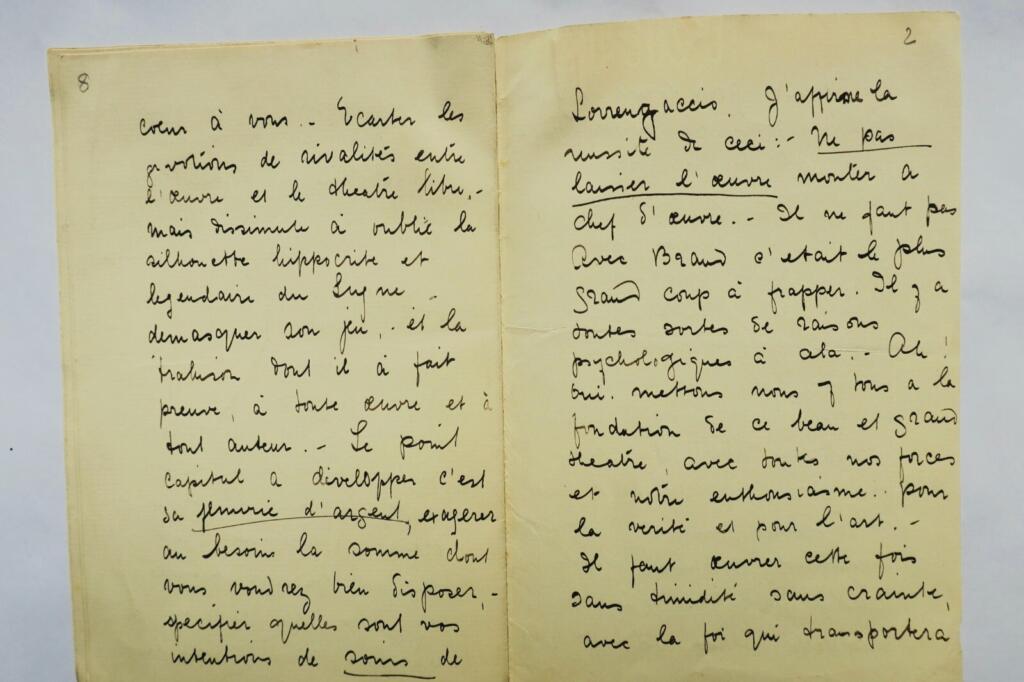 8
coeur à vous. - Ecarter les
de rivalités entre
l'œuvre et le theatre libre, -
mais dissimute à oublié la
silhouette hippocrite et
legendaire du
demasquer son jeu, - et la
trahison dont il à fait
preuve, à toute œuvre et à
tout auteur. - Le point
capital a développer c'est
sa penurie d'argent, exagerer
au besoin la somme dont
vous voudrez bien disposer, -
specifier quelles sont vos
intentions de soins de
2
Lorrenzaccio. J'affirme la
reussite de ceci : - Ne pas
laisser l'œuvre monter a
chef d'œuvre. - Il ne faut pas
Avec Brand c'etait le plus
grand coup à frapper. Il y a
toutes sortes de raisons
psychologiques à cela. - Ah !
oui. mettons nous y tous a la
fondation de ce beau et grand
theatre, avec toutes nos forces
et notre enthousiasme.. pour
la verité et pour l'art. -
Il faut œuvrer cette fois
sans timidité sans crainte,
avec la foi qui transportera